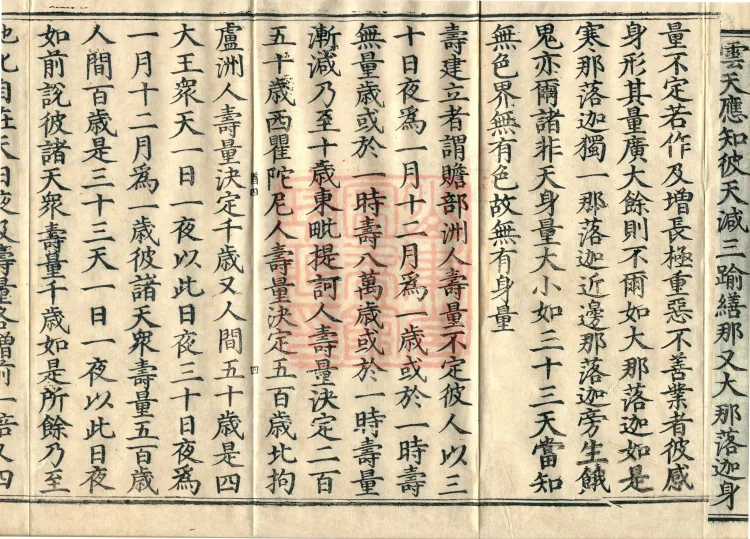 雲天應知彼天減三踰繕那又大那落迦身
量不定若作及增長極重惡不善業者彼感
身形其量廣大餘則不爾如大那落迦如是
寒那落迦獨一那落迦近邊那落迦旁生餓
鬼亦爾諸非天身量大小如三十三天當知
無色界無有色故無有身量
壽建立者謂贍部洲人壽量不定彼人以三
十日夜為一月十二月為一歲或於一時壽
無量歲或於一時壽八萬歲或於一時壽量
漸減乃至十歲東毗提訶人壽量決定二百
五十歲西瞿陀尼人壽量決定五百歲北拘
盧洲人壽量決定千歲又人間五十歲是四
大王衆天一日一夜以此日夜三十日夜為
一月十二月為一歲彼諸天衆壽量五百歲
人間百歲是三十三天一日一夜以此日夜
如前說彼諸天衆壽量千歲如是所餘乃至
他化自在天日夜及壽量各增前一倍又四
四